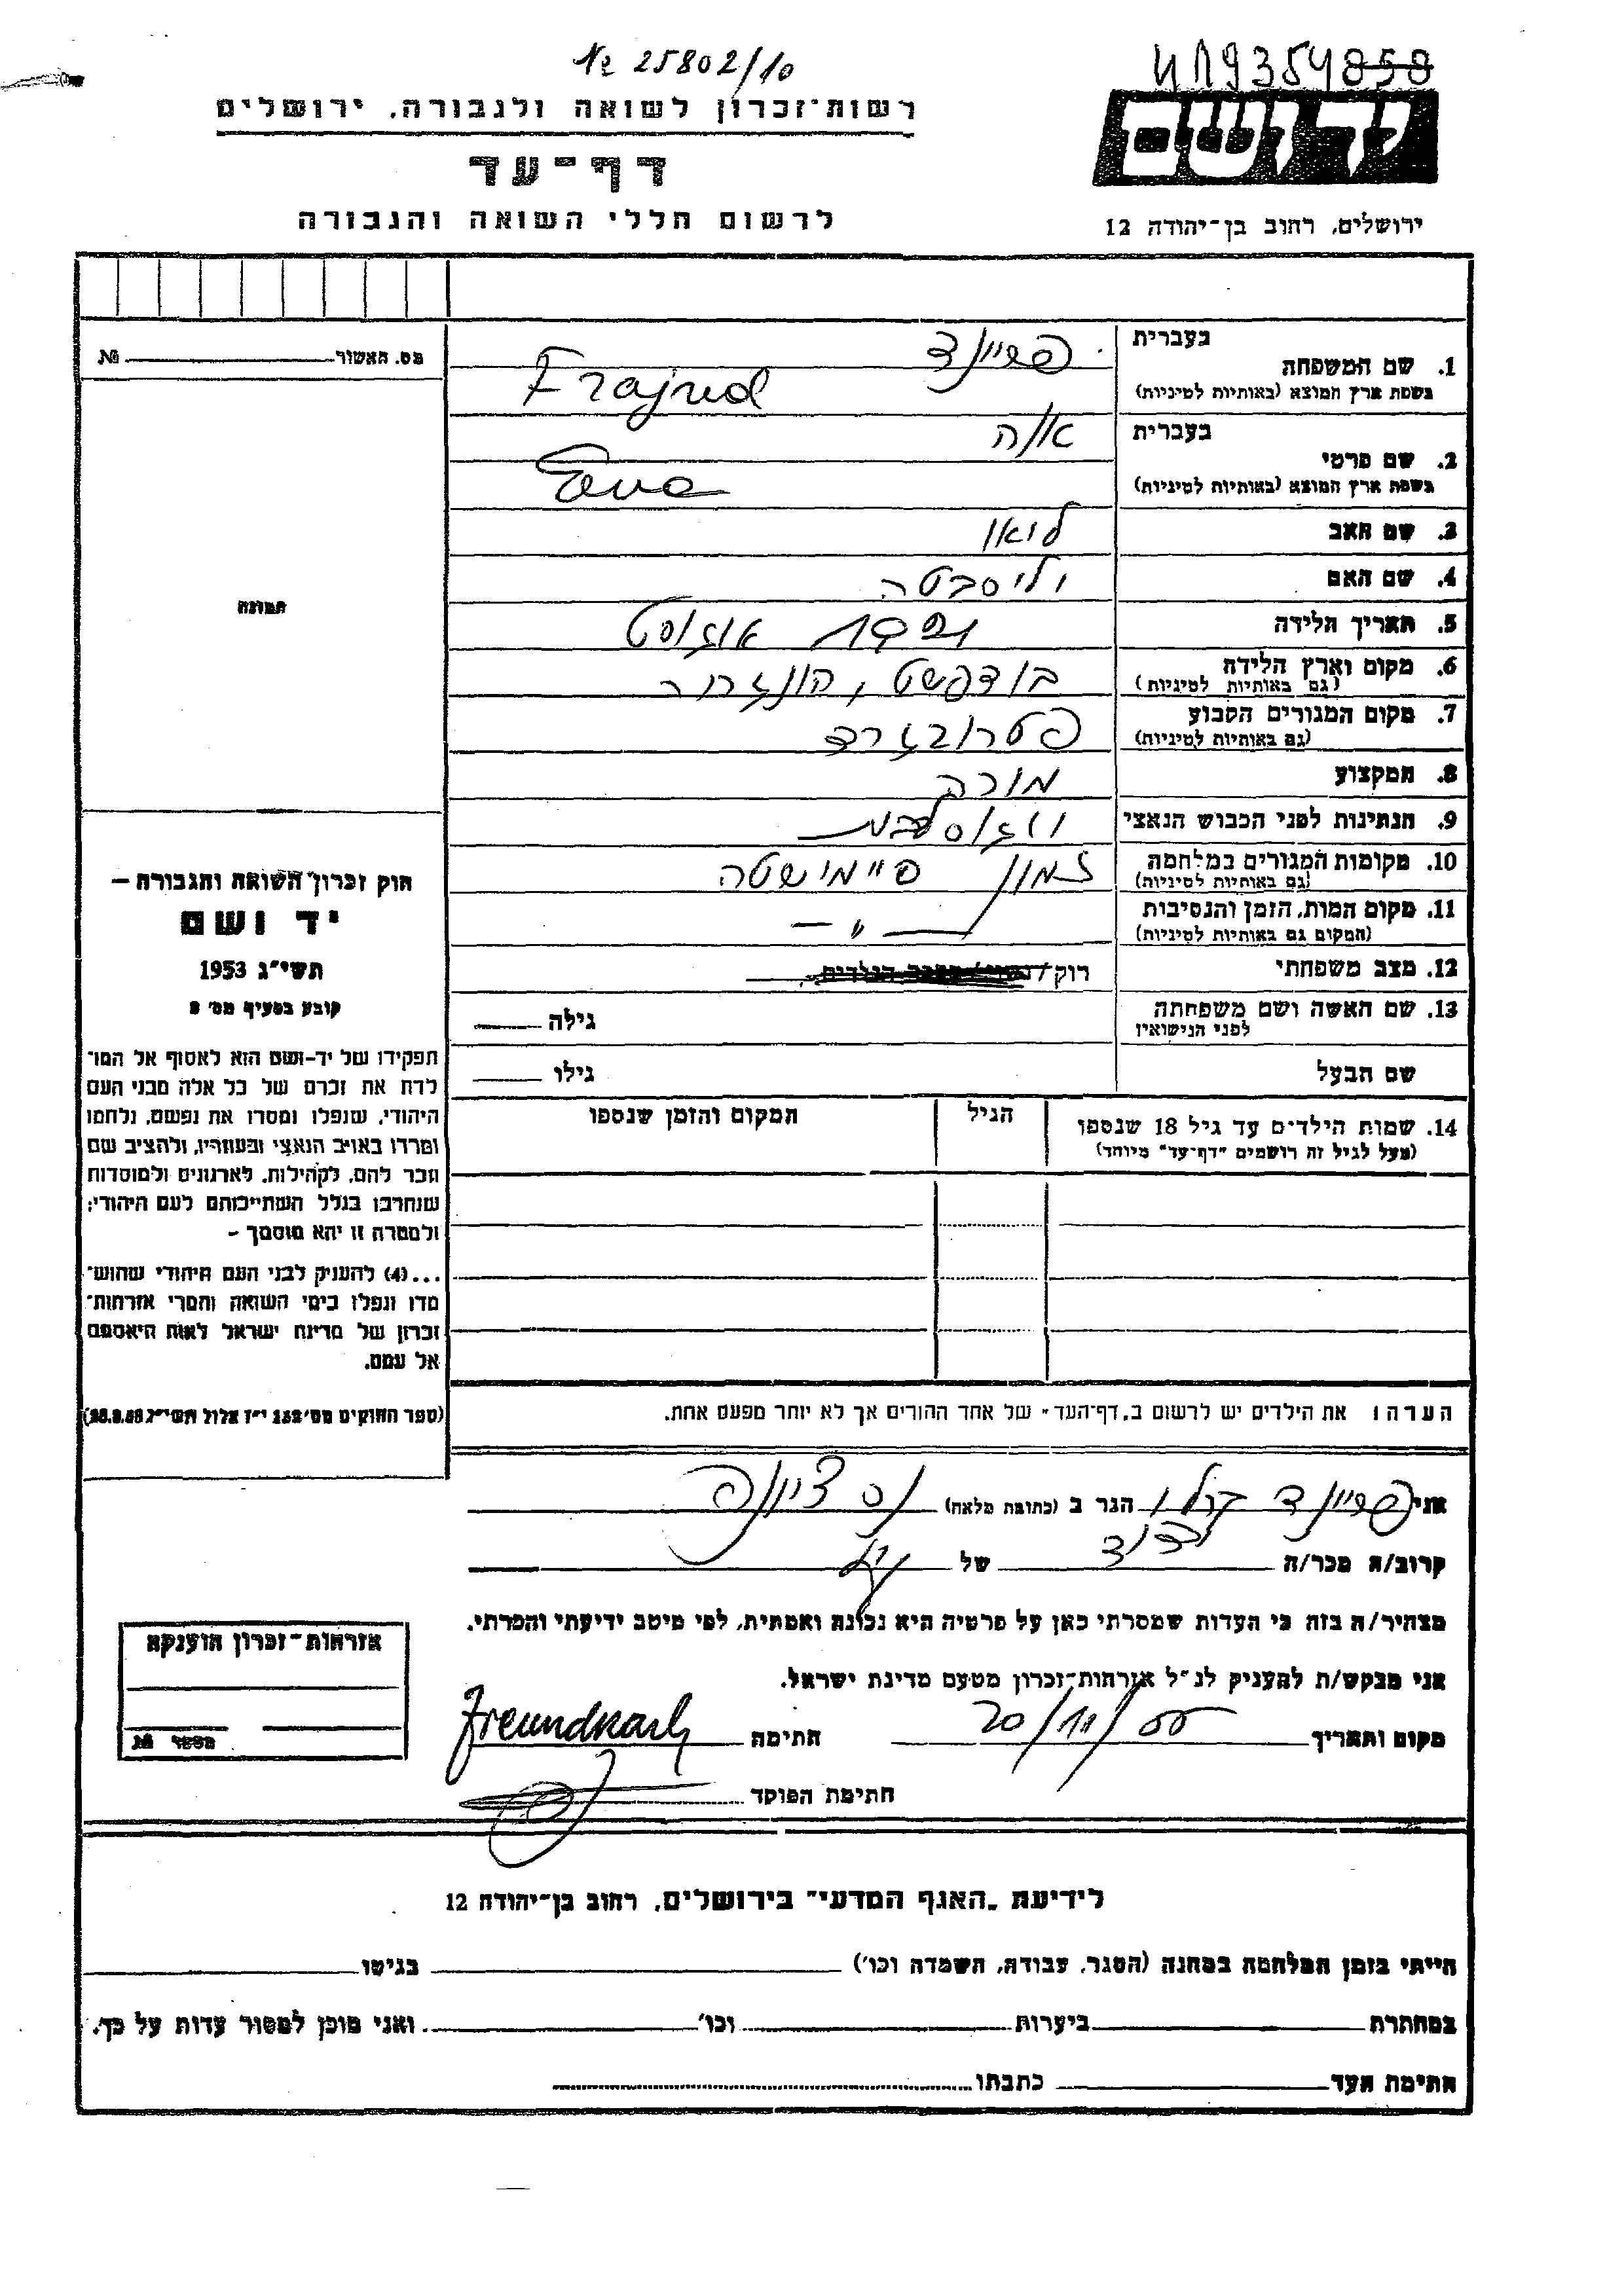 № 25802/10
רשות־זכרון לשואה ולגבורה, ירושלים
דף־עד
לרשום חללי השואה והגבורה
יד ושם
ירושלים, רחוב בן־יהודה 12
מס. האשור № 
תמונה
1. שם המשפחה בעברית פריינד
בשפת ארץ המוצא (באותיות לטיניות) Frajnd
2. שם פרטי בעברית אוה
בשפת ארץ המוצא (באותיות לטיניות) Eva
3. שם האב
4. שם האם
5. תאריך הלידה אוגוסט
6. מקום וארץ הלידה בודפשט, הונגריה
(גם באותיות לטיניות)
7. מקום המגורים הקבוע פטרובגרד
(גם באותיות לטיניות)
8. המקצוע מורה
9. הנתינות לפני הכבוש הנאצי
10. מקומות המגורים במלחמה זמון סיימישטה
(גם באותיות לטיניות)
11. מקום המות, הזמן והנסיבות — " —
(המקום גם באותיות לטיניות)
12. מצב משפחתי רוק/
13. שם האשה ושם משפחתה גילה
לפני הנישואין
שם הבעל גילו
14. שמות הילדים עד גיל 18 שנספו הגיל המקום והזמן שנספו
(מעל לגיל זה רושמים "דף־עד" מיוחד)
חוק זכרון השואה והגבורה –
יד ושם
תשי"ג 1953
קובע בסעיף מס' 2
תפקידו של יד־ושם הוא לאסוף אל המו־
לדת את זכרם של כל אלה מבני העם
היהודי, שנפלו ומסרו את נפשם, נלחמו
ומרדו באויב הנאצי ובעוזריו, ולהציב שם
וזכר להם, לקהילות, לארגונים ולמוסדות
שנחרבו בגלל השתייכותם לעם היהודי;
ולמטרה זו יהא מוסמך –
...(4) להעניק לבני העם היהודי שהוש־
מדו ונפלו בימי השואה והמרי אזרחות־
זכרון של מדינת ישראל לאות היאספם
אל עמם.
(ספר החוקים מס' 132 י"ז אלול תשי"ג 28.8.53)
הערה: את הילדים יש לרשום ב"דף־העד" של אחד ההורים אך לא יותר מפעם אחת.
אני פריינד קרלו הגר ב (כתובת מלאה) נס ציונה
קרוב/ה מכר/ה של
מצהיר/ה בזה כי העדות שמסרתי כאן על פרטיה היא נכונה ואמתית, לפי מיטב ידיעתי והכרתי.
אני מבקש/ת להעניק לנ"ל אזרחות־זכרון מטעם מדינת ישראל.
מקום ותאריך 20/11/55 חתימה
חתימת הפוקד
אזרחות־זכרון הוענקה
מספר №
לידיעת "האגף המדעי" בירושלים, רחוב בן־יהודה 12
הייתי בזמן המלחמה במחנה (הסגר, עבודה, השמדה וכו') בגיטו
במחתרת ביערות וכו' ואני מוכן למסור עדות על כך.
חתימת העד כתבתו